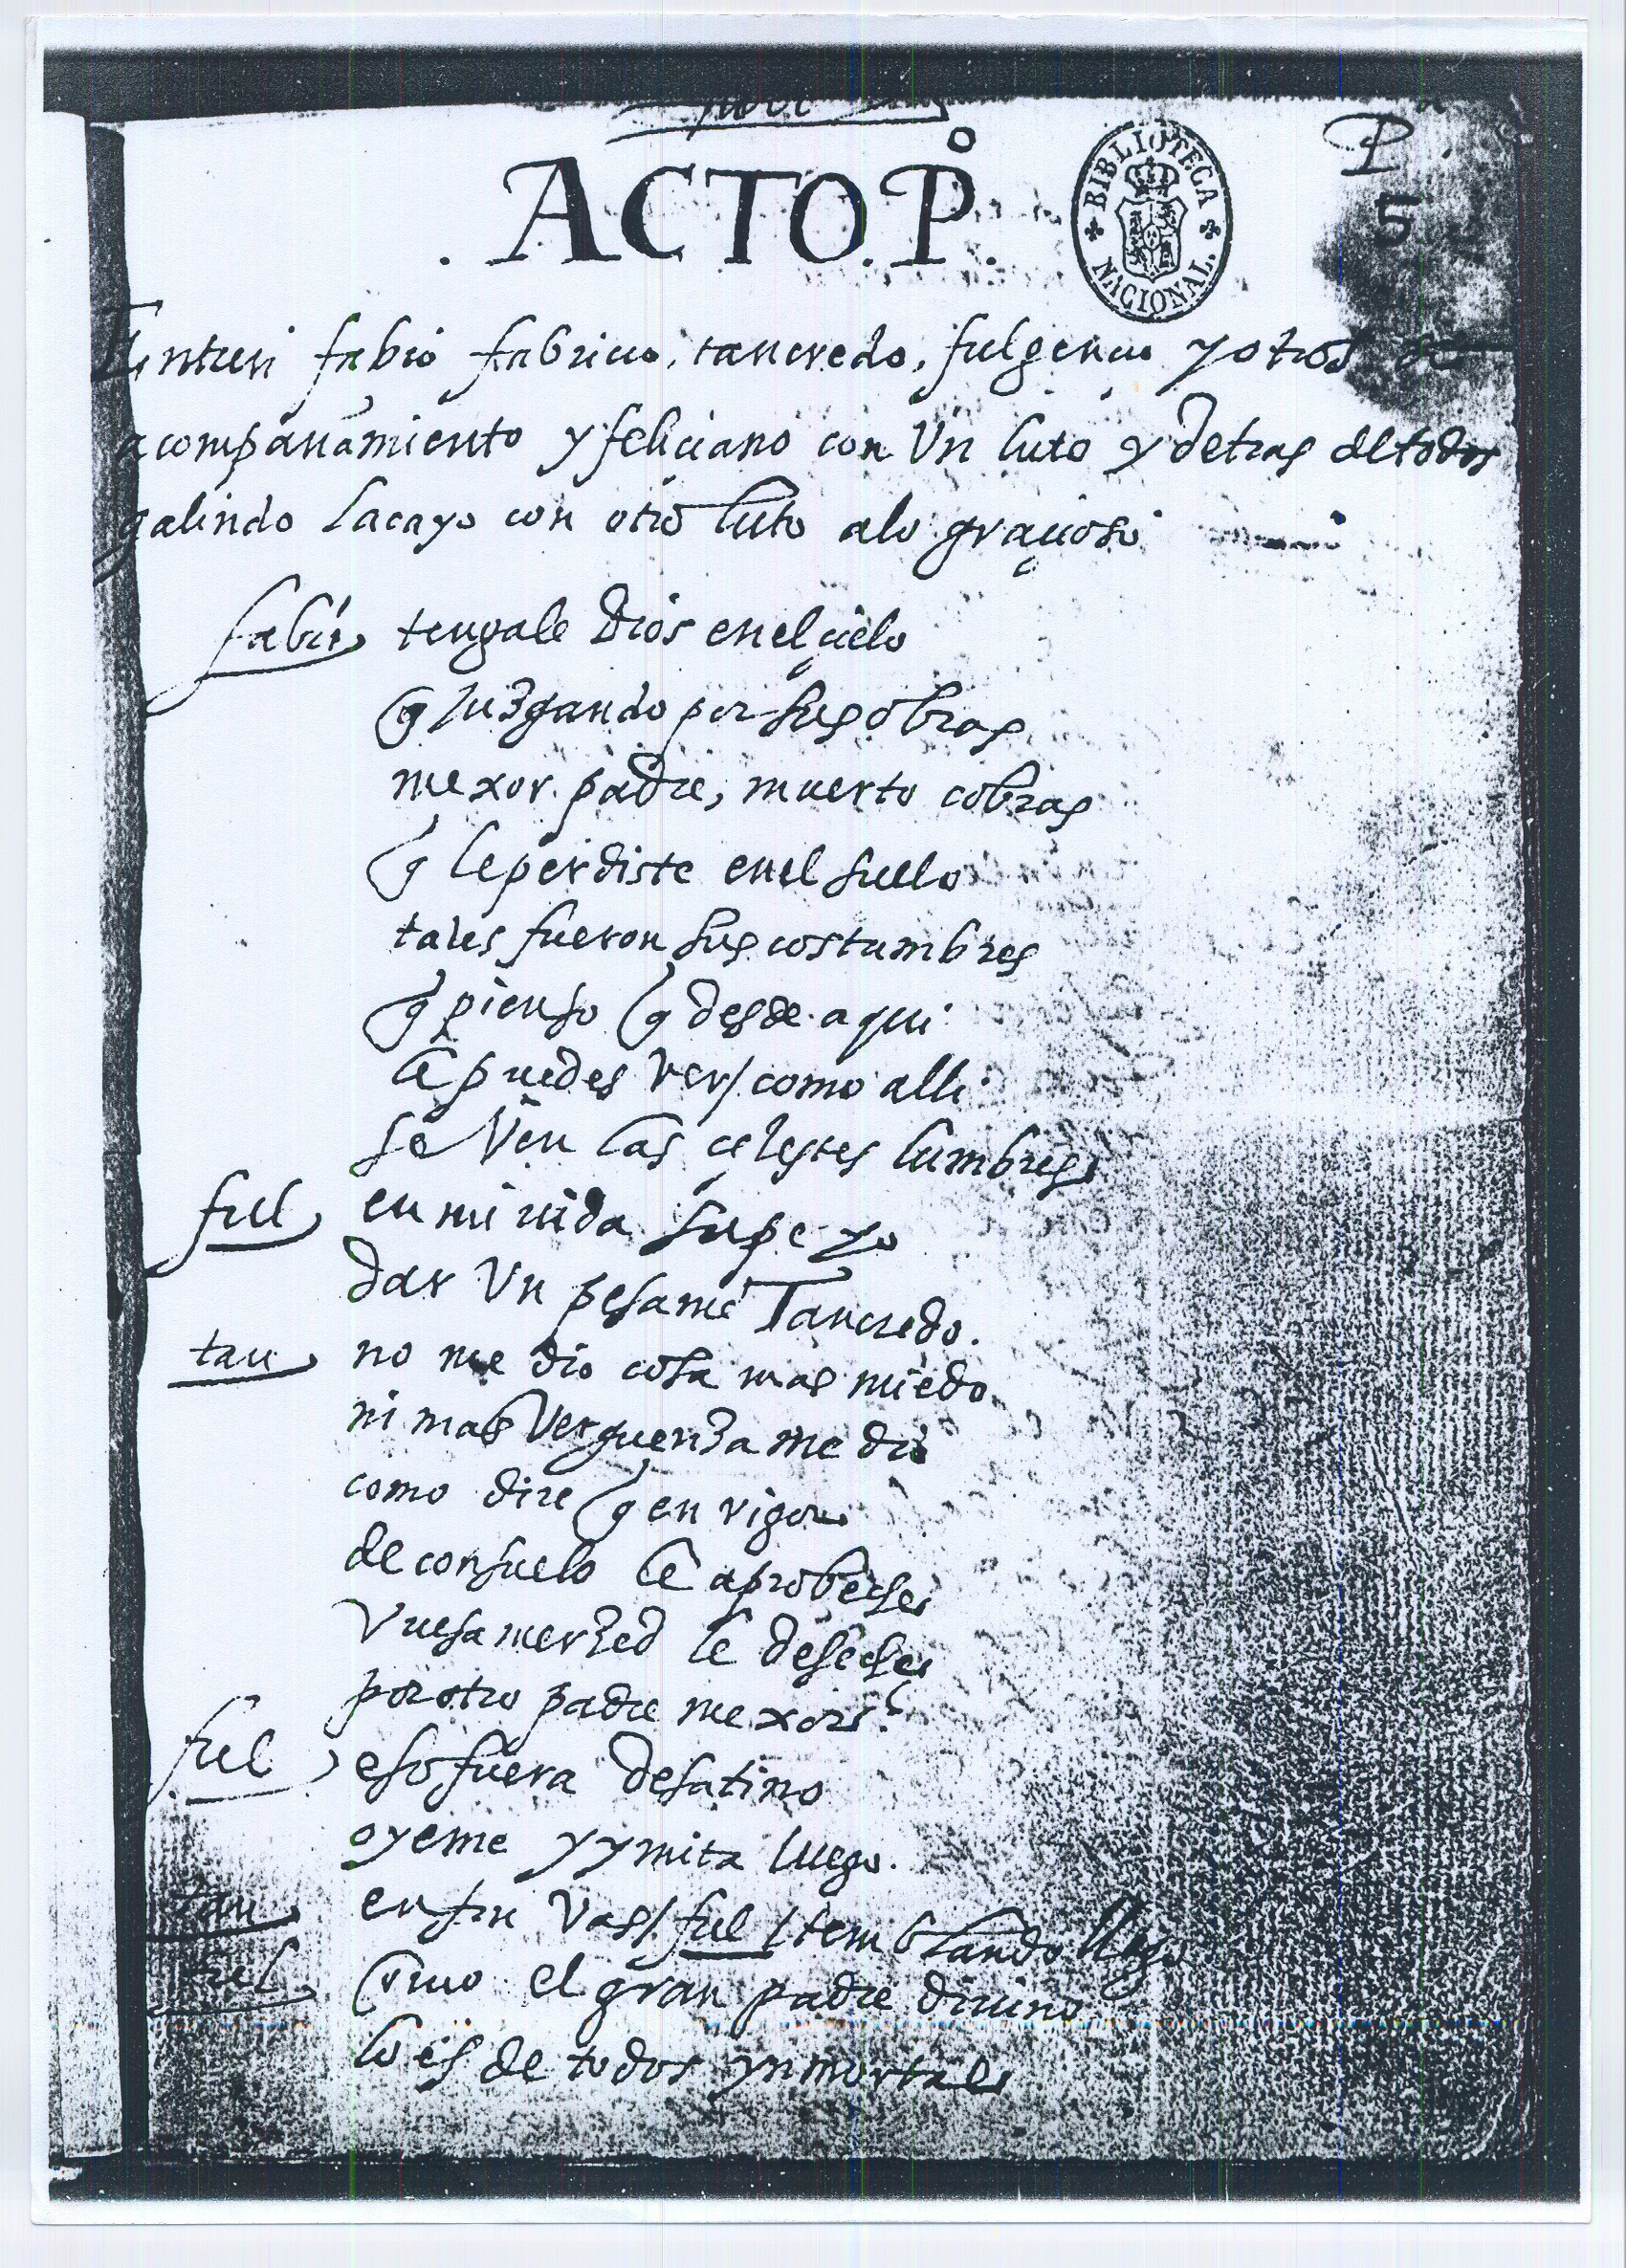 . ACTO. Pº.
BIBLIOTECA NACIONAL
P
5
Entren fabio fabricio, tancredo, fulgencio y otros de
acompañamiento y feliciano con Vn luto y detras de todos
galindo lacayo con otro luto alo graçioso
fabio tengale Dios en el çielo
q̃ juzgando por sus obras
mexor padre, muerto cobras
q̃ le perdiste en el suelo
tales fueron sus costumbres
q̃ pienso q̃ desde aqui
le puedes ver / como alli
se ven las çelestes lumbres
ful en mi uida supe yo
dar Vn pesame Tancredo.
tan no me dio cosa mas miedo
ni mas Verguenza me dio
como dire q̃ en rigor
de consuelo le aprobeche
Vuesa merzed le deseche
por otro padre mexor?
ful eso fuera desatino
oyeme y ymita luego.
tan en fin Vas / ful / temblando llego
ful como el gran padre diuino
lo es de todos ynmortal